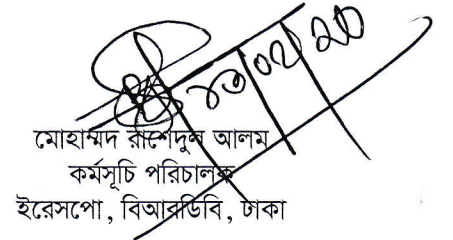 মোহাম্মদ রাশেদুল আলম
কর্মসূচি পরিচালক
ইরেসপো, বিআরডিবি, ঢাকা